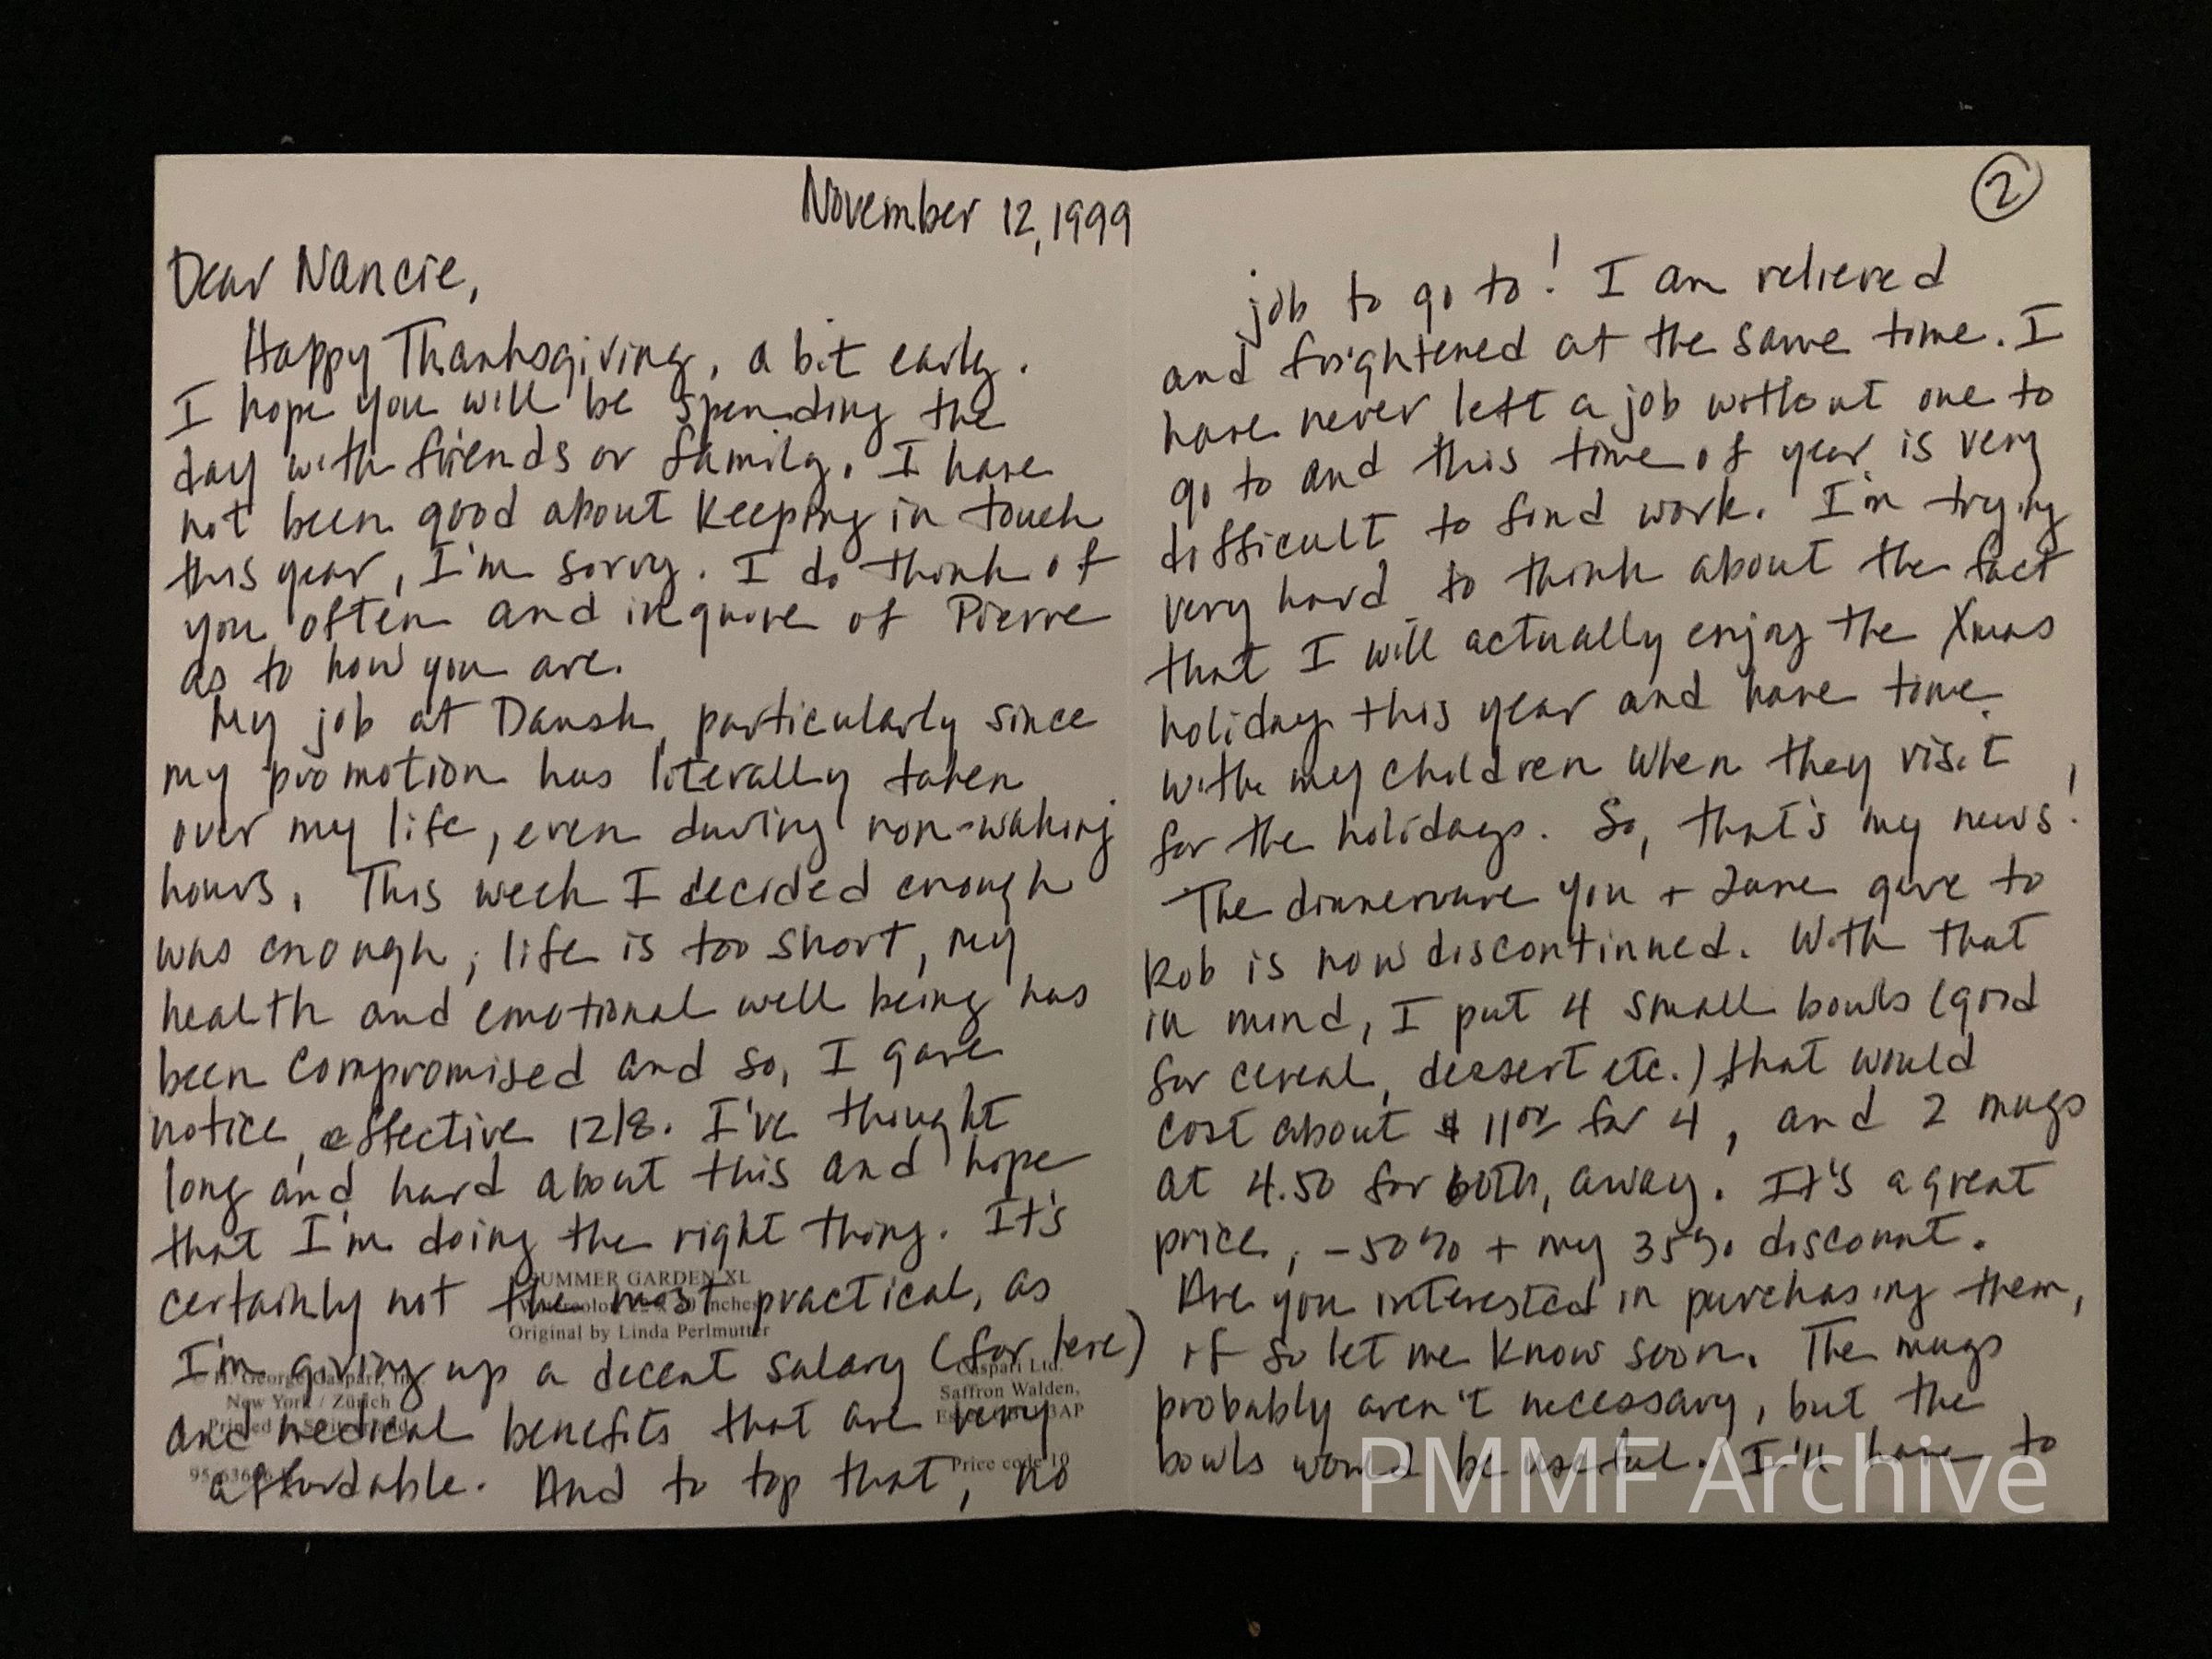 November 12, 1999
Dear Nancie,
Happy Thanksgiving, a bit early.
I hope you will be spending the
day with friends or family. I have
not been good about keeping in touch
this year, I'm sorry. I do think of
you often and inquire of Pierre
as to how you are.
My job at Dansk, particularly since
my promotion has literally taken
over my life, even during non-waking
hours. This week I decided enough
was enough; life is too short, my
health and emotional well being has
been compromised and so, I gave
notice, effective 12/8. I've thought
long and hard about this and hope
that I'm doing the right thing. It's
certainly not the most practical, as
I'm giving up a decent salary (for here)
and medical benefits that are very
affordable. And to top that, no
SUMMER GARDEN XL
Original by Linda Perlmutter
New York / Zürich
Caspari Ltd.
Saffron Walden,
Price code 10
②
job to go to! I am relieved
and frightened at the same time. I
have never left a job without one to
go to and this time of year is very
difficult to find work. I'm trying
very hard to think about the fact
that I will actually enjoy the Xmas
holiday this year and have time
with my children when they visit
for the holidays. So, that's my news!
The dinnerware you + June gave to
Rob is now discontinued. With that
in mind, I put 4 small bowls (good
for cereal, dessert etc.) that would
cost about $11 for 4, and 2 mugs
at 4.50 for both, away. It's a great
price, -50% + my 35% discount.
Are you interested in purchasing them,
if so let me know soon. The mugs
probably aren't necessary, but the
bowls would be useful. I'll have to
PMMF Archive